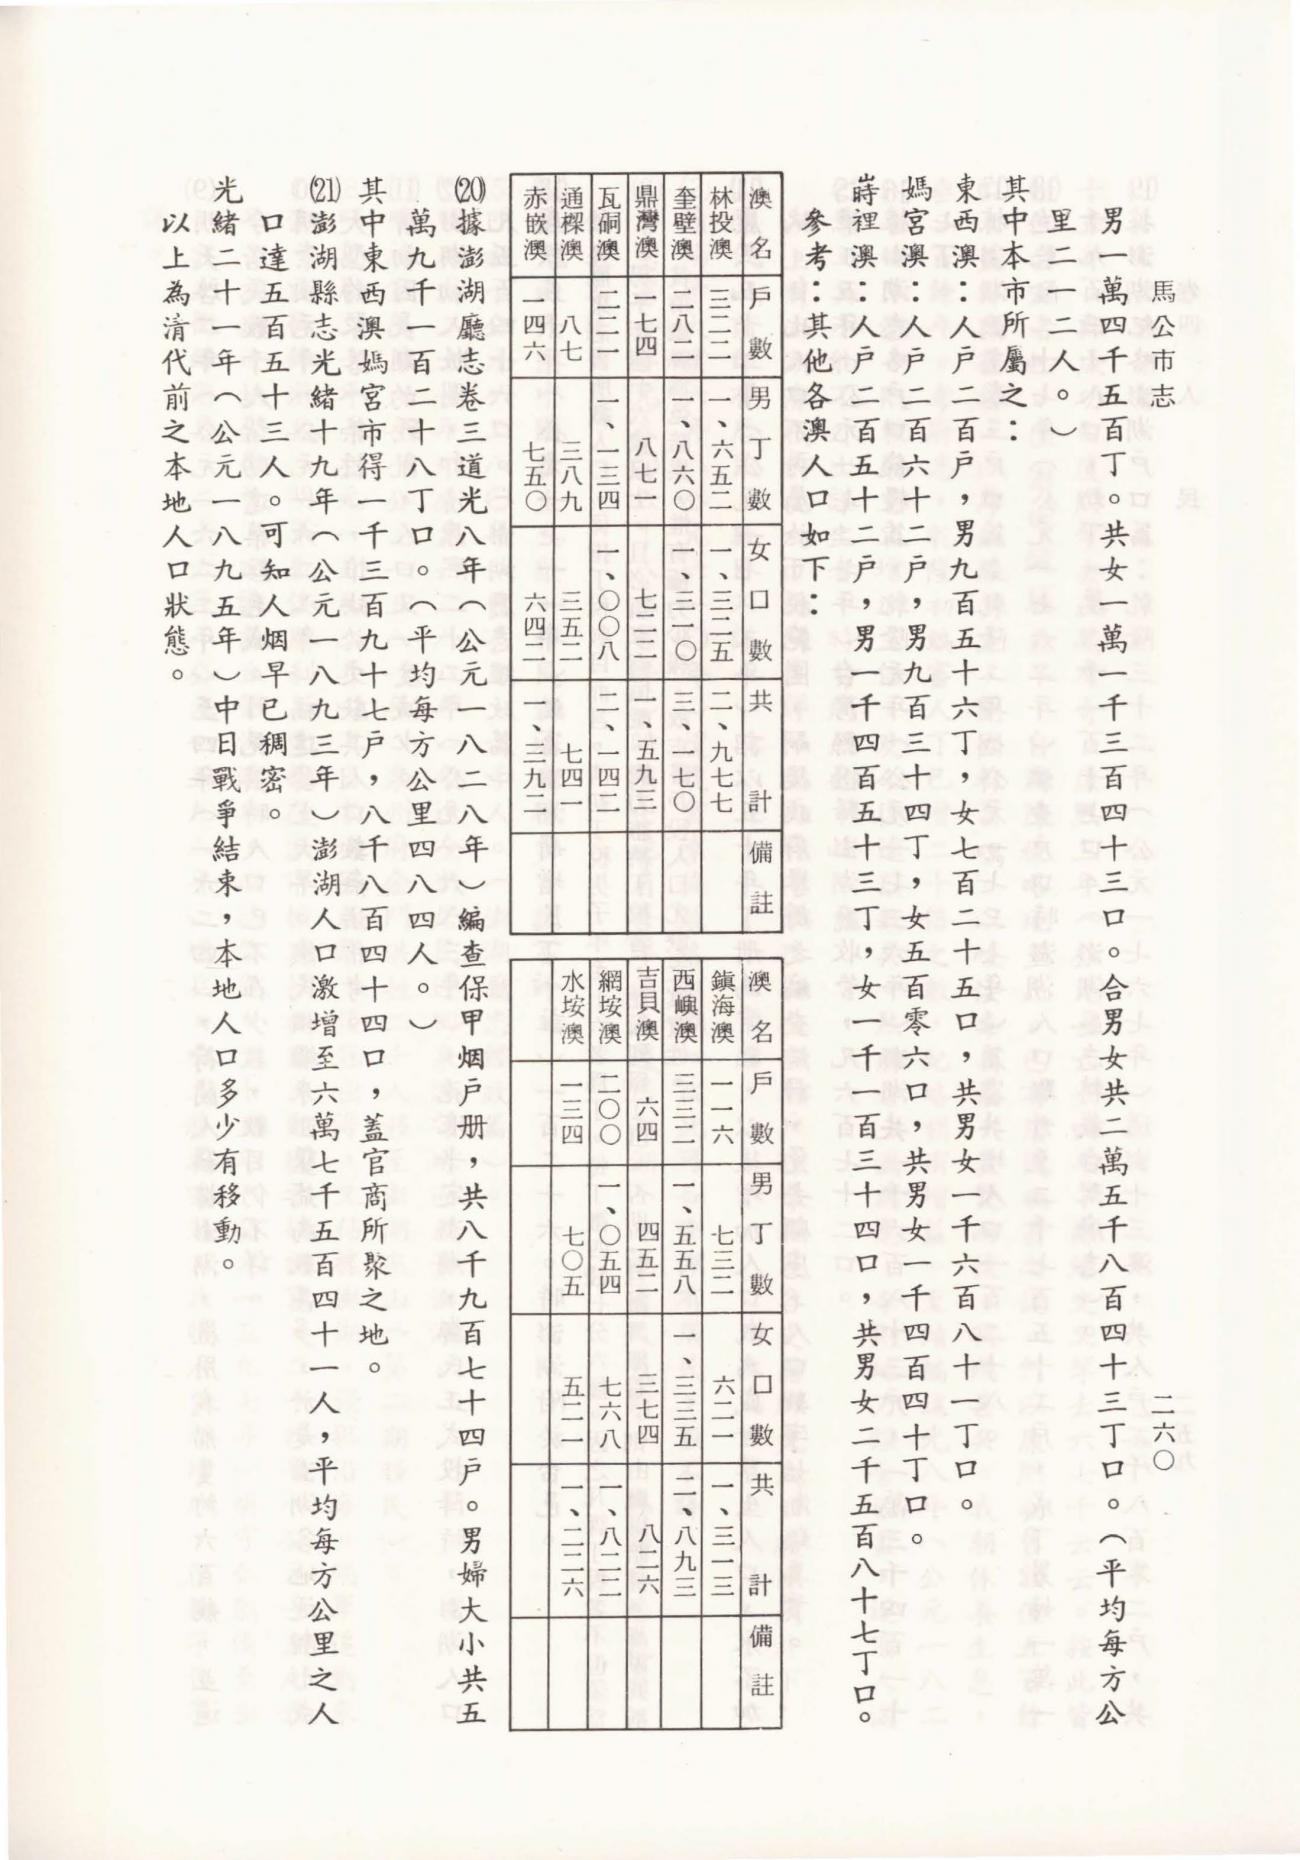 馬公市志　二六〇
男一萬四千五百丁。共女一萬一千三百四十三口。合男女共二萬五千八百四十三丁口。（平均每方公
里二一二人。）
其中本市所屬之：
東西澳：人戶二百戶，男九百五十六丁，女七百二十五口，共男女一千六百八十一丁口。
媽宮澳：人戶二百六十二戶，男九百三十四丁，女五百零六口，共男女一千四百四十丁口。
嵵裡澳：人戶二百五十二戶，男一千四百五十三丁，女一千一百三十四口，共男女二千五百八十七丁口。
參考：其他各澳人口如下：
澳名　戶數　男丁數　女口數　共計　備註
林投澳　三二二　一、六五二　一、三二五　二、九七七
奎壁澳　二八二　一、八六〇　一、三一〇　三、一七〇
鼎灣澳　一七四　八七一　七二二　一、五九三
瓦硐澳　二二一　一、一三四　一、〇〇八　二、一四二
通樑澳　八七　三八九　三五二　七四一
赤嵌澳　一四六　七五〇　六四二　一、三九二
澳名　戶數　男丁數　女口數　共計　備註
鎮海澳　一一六　七三二　六二一　一、三一三
西嶼澳　三三二　一、五五八　一、三三五　二、八九三
吉貝澳　六四　四五二　三七四　八二六
網垵澳　二〇〇　一、〇五四　七六八　一、八二二
水垵澳　一三四　七〇五　五二一　一、二二六
⒇據澎湖廳志卷三道光八年（公元一八二八年）編查保甲烟戶册，共八千九百七十四戶。男婦大小共五
萬九千一百二十八丁口。（平均每方公里四八四人。）
其中東西澳媽宮市得一千三百九十七戶，八千八百四十四口，蓋官商所聚之地。
(21)澎湖縣志光緒十九年（公元一八九三年）澎湖人口激增至六萬七千五百四十一人，平均每方公里之人
口達五百五十三人。可知人烟早已稠密。
光緒二十一年（公元一八九五年）中日戰爭結束，本地人口多少有移動。
以上為清代前之本地人口狀態。